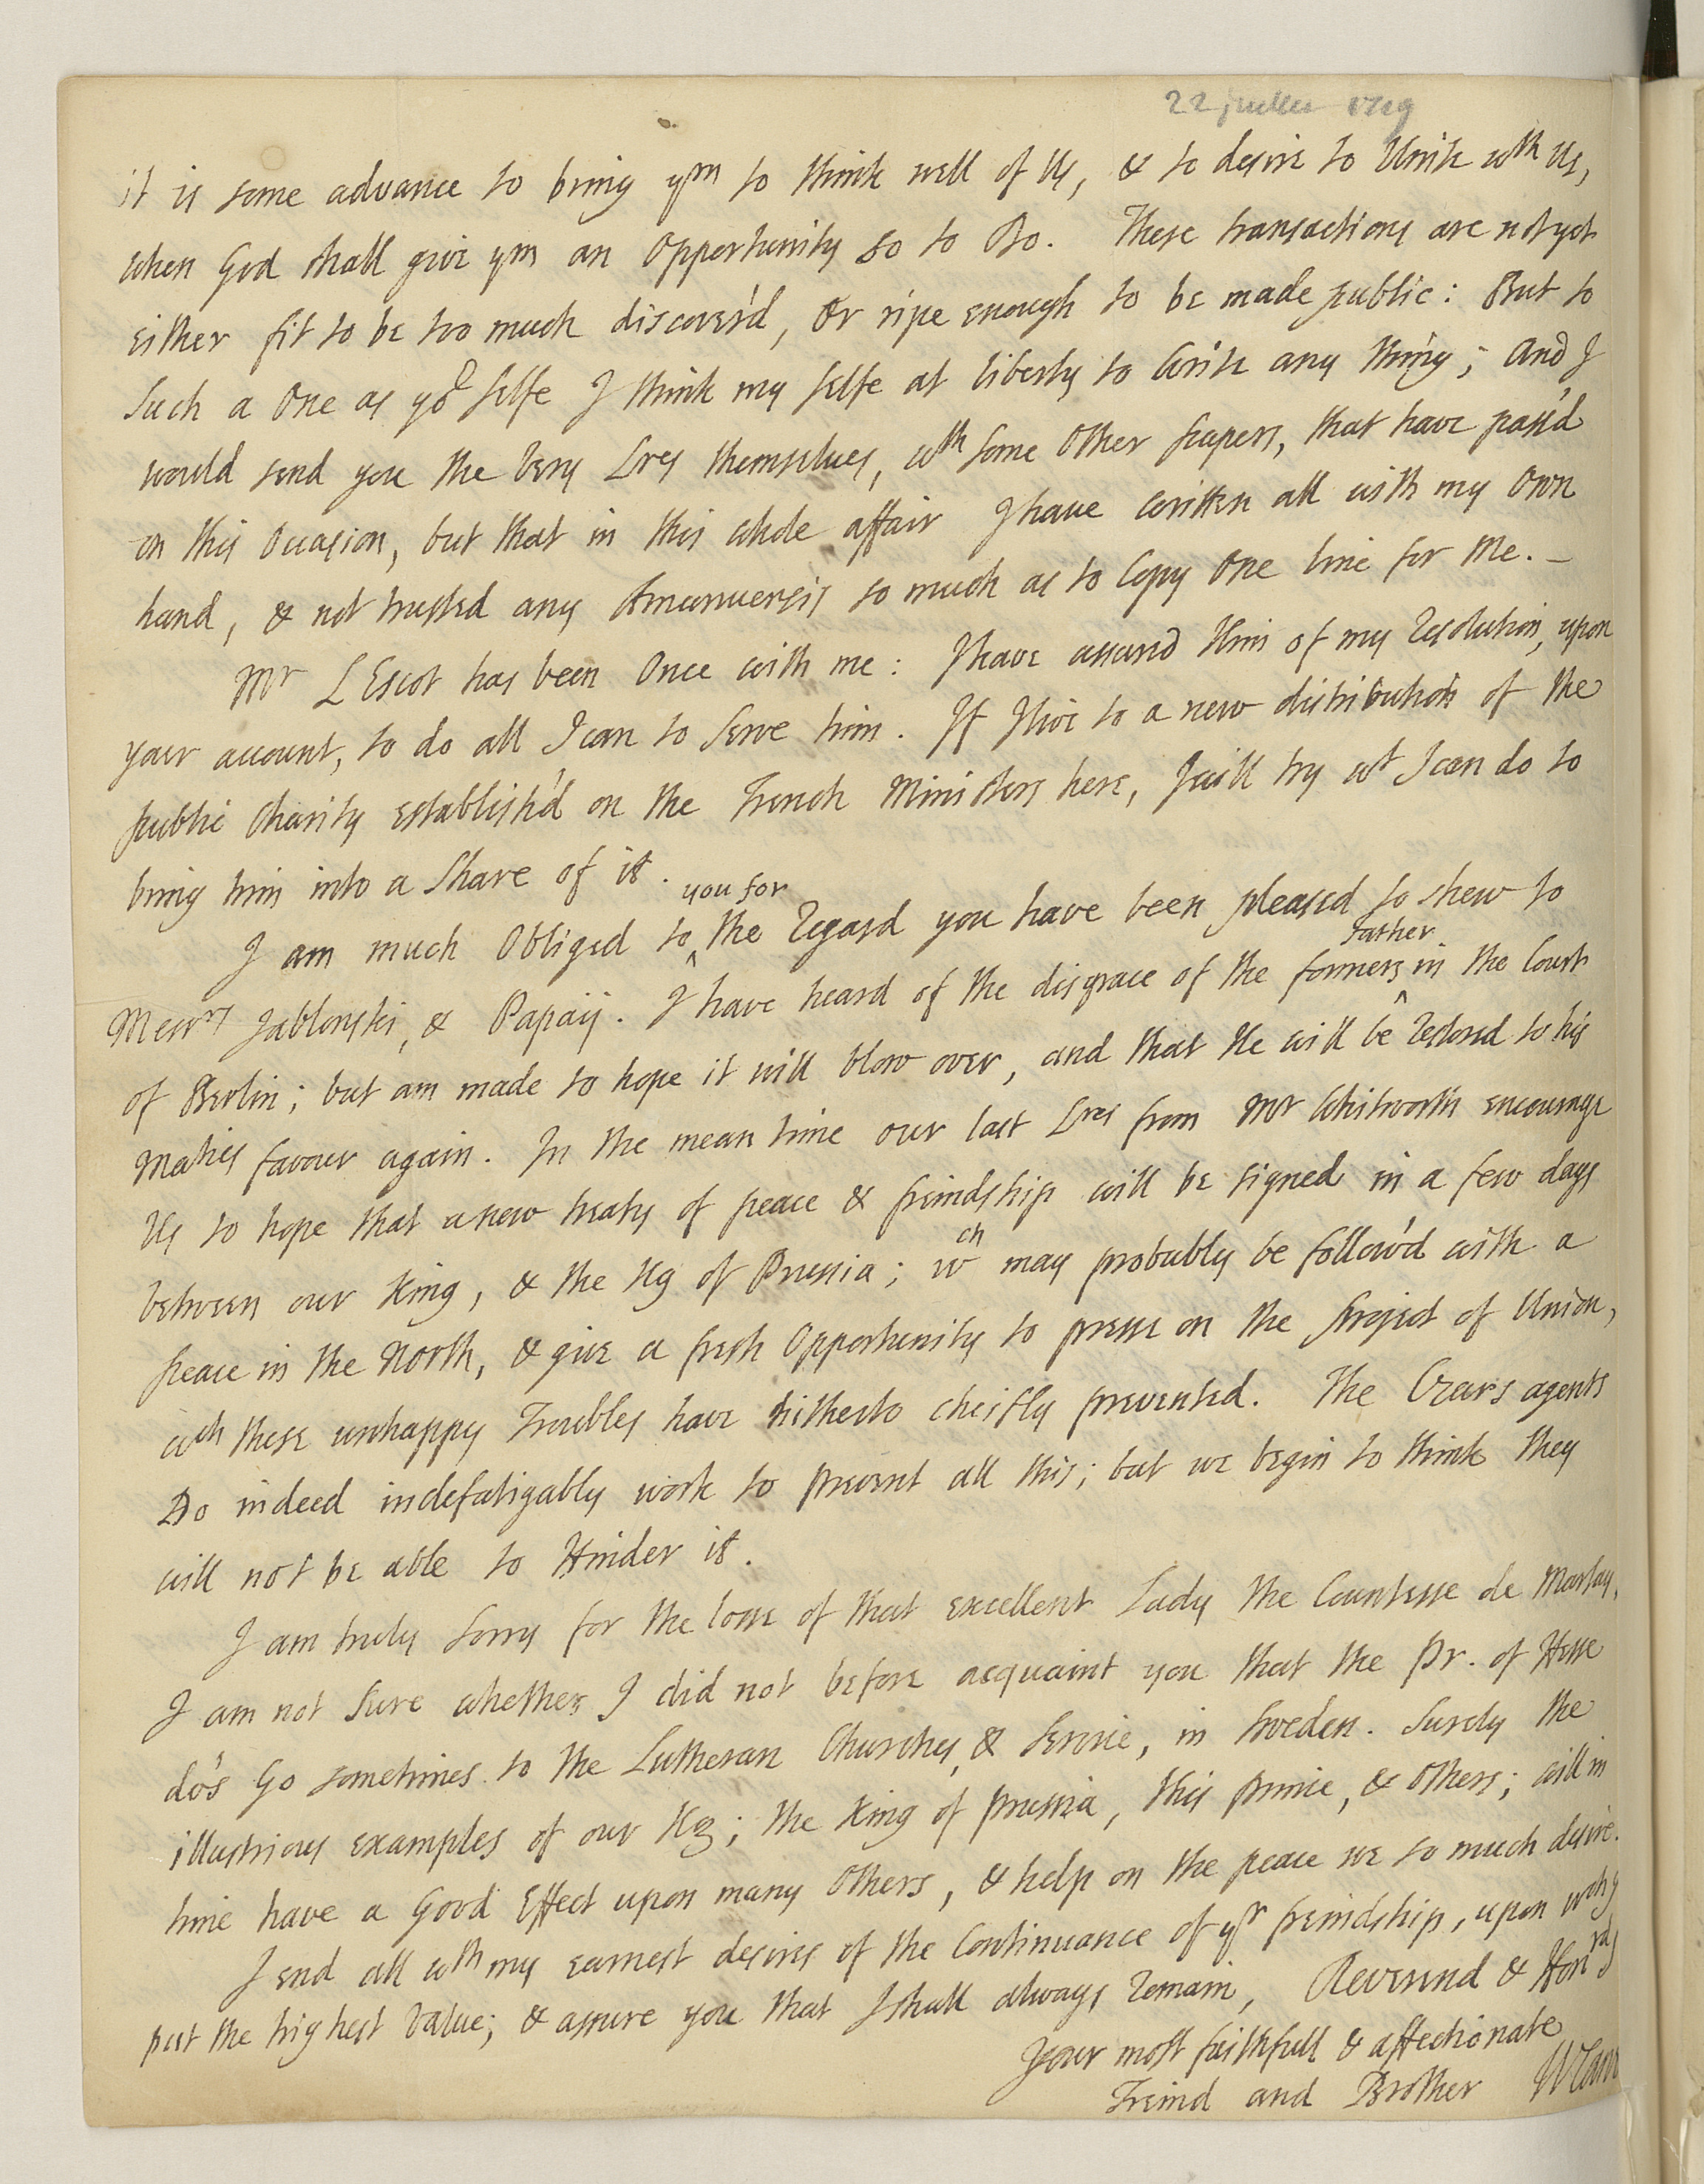 22 juillet 1719
it is some advance to bring ym to think well of Us, & to desire to Unite wth Us,
when God shall give ym an Opportunity so to Do. These transactions are not yet
either fit to be too much discover'd, Or ripe enough to be made public: But to
Such a One as yor selfe I think my selfe at liberty to write any thing; And I
would send you the Very Lres themselves, wth some Other papers, that have pass'd
on this Occasion, but that in this whole affair I have written all with my Own
hand, & not trusted any Amanuensis so much as to Copy One line for Me. –
Mr L Escot has been Once with me: I have assured Him of my Resolution, upon
your account, to do all I can to Serve him. If I live to a new distribution of the
public Charity establish'd on the French Ministers here, I will try wt I can do to
bring him into a Share of it.
you for
I am much Obliged to ^ the Regard you have been pleased to shew to
father
Messrs Jablonski, & Papaij. I have heard of the disgrace of the formers ^ in the Court
of Berlin; but am made to hope it will blow over, and that He will be Restored to his
Maties favour again. In the mean time our last Lres from Mr Whitworth encourage
Us to hope that a new treaty of peace & freindship will be signed in a few days
between our King, & the Kg of Prussia; wch may probably be follow'd with a
peace in the North, & give a fresh Opportunity to presse on the project of Union,
wch these unhappy Troubles have hitherto cheifly prevented. The Czars agents
Do indeed indefatigably work to prevent all this; but we begin to think they
will not be able to Hinder it.
I am truly sorry for the losse of that excellent Lady the Countesse de Marsay.
I am not Sure whether I did not before acquaint you that the Pr. of Hesse
do's Go sometimes to the Lutheran Churches, & Service, in Sweden. Surely the
illustrious examples of our Kg; the King of Prussia, this prince, & others; will in
time have a Good Effect upon many Others, & help on the peace we so much desire.
I end all wth my earnest desires of the Continuance of yr freindship, upon wch I
put the highest Value; & assure you that I shall always Remain, Reverend & Honrd Sr
Your most faithfull & affectionate
Freind and Brother W Cant